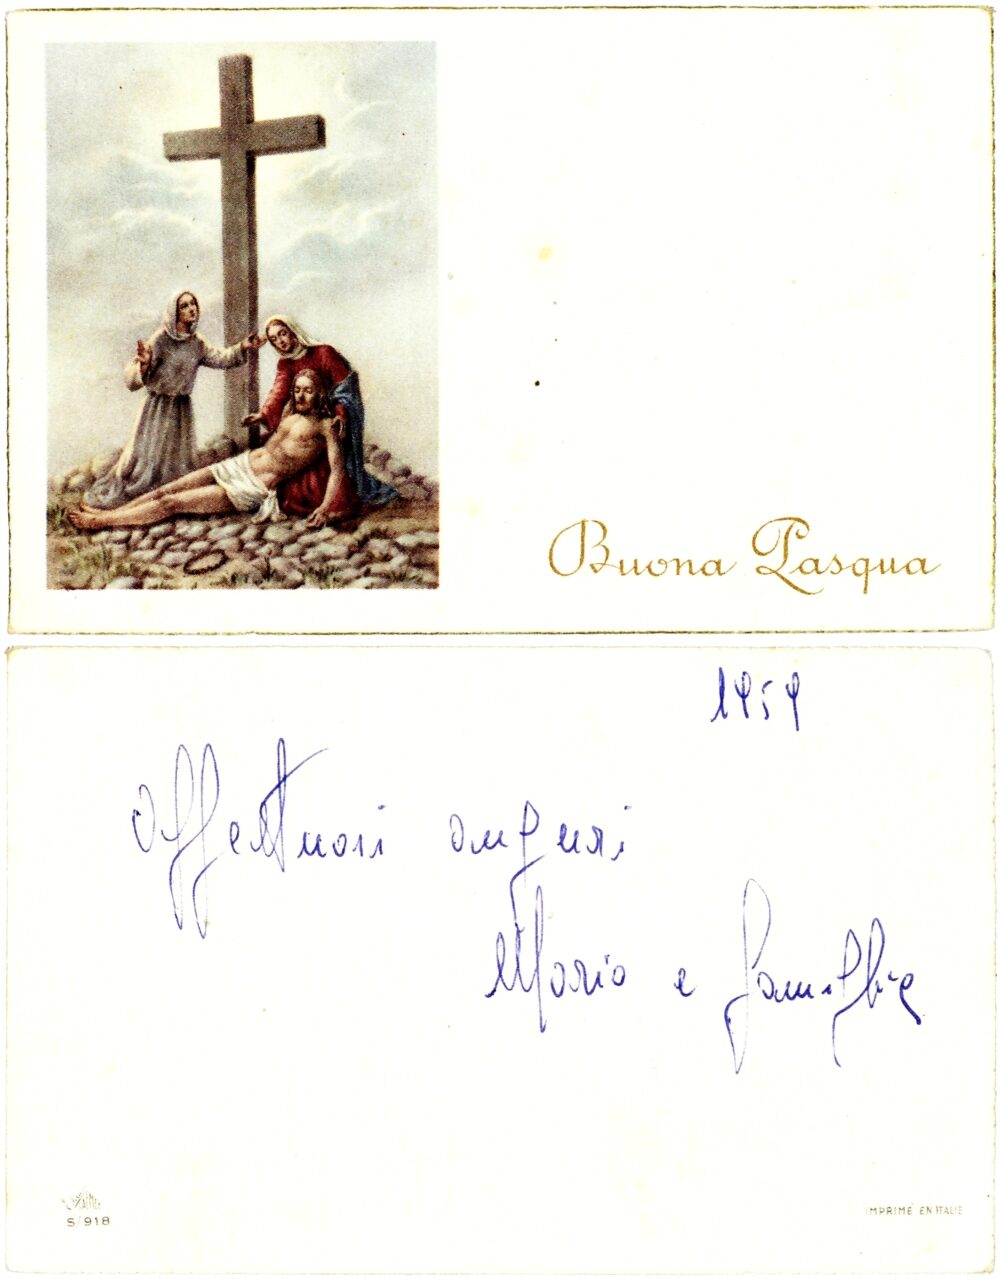 Buona Pasqua
1959
Affettuosi auguri
Mario e famiglia
S/918
IMPRIMÉ EN ITALIE